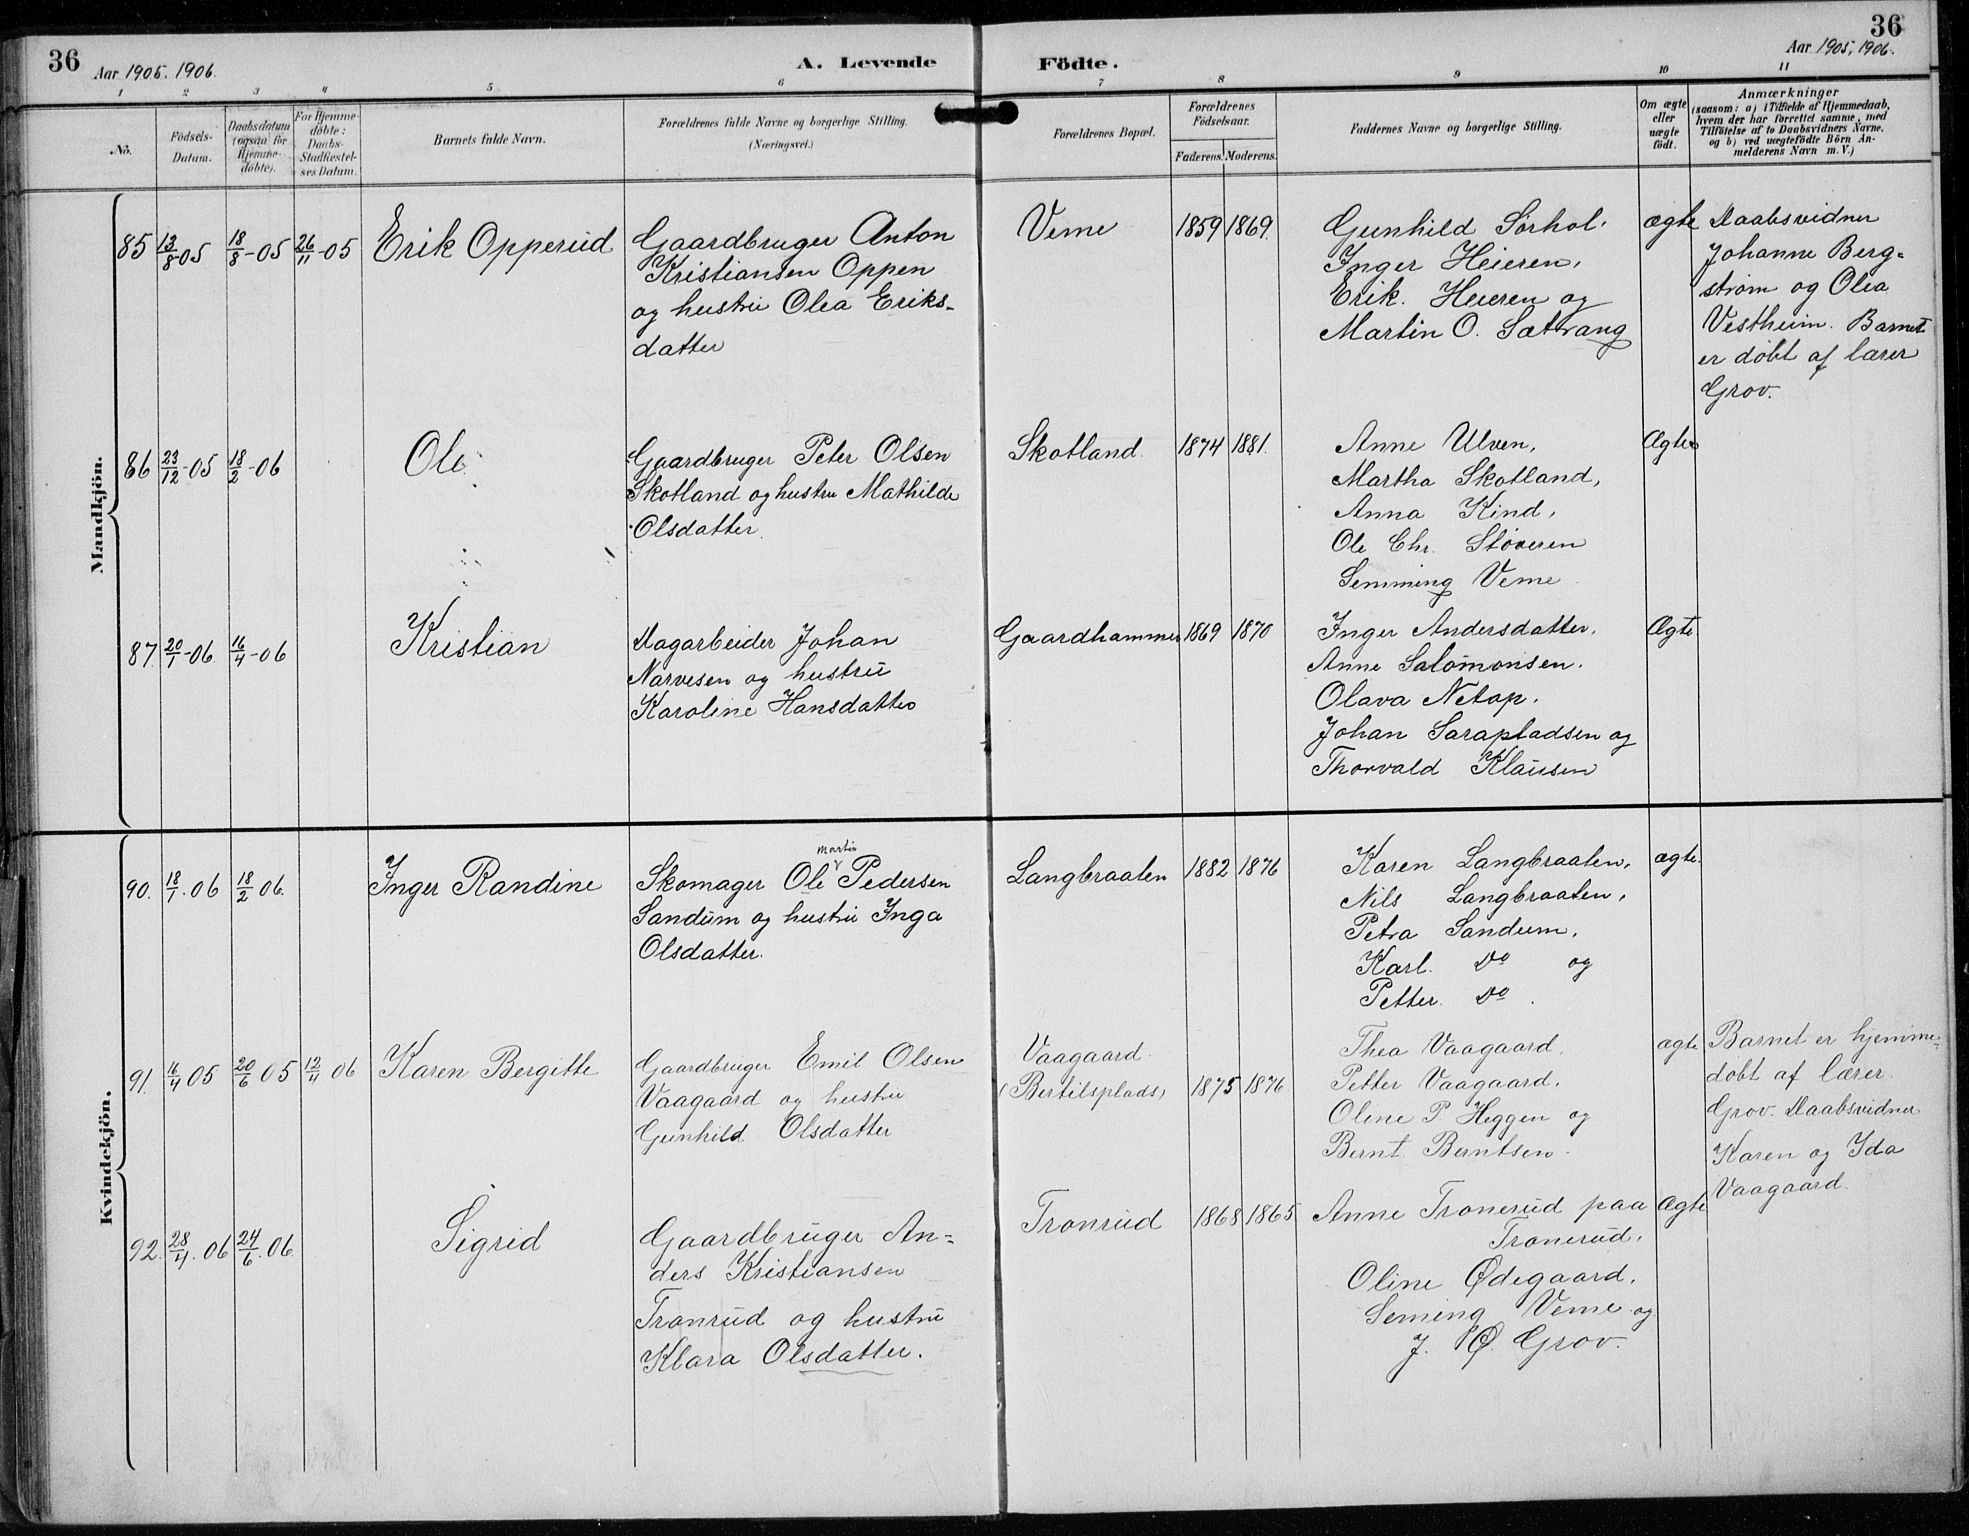 36
Aar 1905. 1906.
A. Levende
Födte.
36
Aar 1905, 1906.
1 2 3 4 5 6 7 8 9 10 11
No.
Födsels-
Datum.
Daabsdatum
(ogsaa for
Hjemme-
döbte).
For Hjemme-
döbte:
Daabs-
Stadfæstel-
ses Datum.
Barnets fulde Navn.
Forældrenes fulde Navne og borgerlige Stilling.
(Næringsvei.)
Forældrenes Bopæl.
Forældrenes
Födselsaar.
Faderens. Moderens.
Faddernes Navne og borgerlige Stilling.
Om ægte
eller
uægte
födt.
Anmærkninger
(saasom: a) i Tilfælde af Hjemmedaab,
hvem der har forrettet samme, med
Tilföielse af to Daabsvidners Navne.
og b) ved uægtefödte Börn An-
melderens Navn m. V.)
Mandkjön.
85 13/8-05 18/8-05 26/11-05 Erik Opperud
Gaardbruger Anton
Kristiansen Oppen
og hustru Olea Eriks-
datter
Veme 1859 1869.
Gunhild Sørhol.
Inger Heieren,
Erik. Heieren og
Martin O. Sætrang
ægte
Daabsvidner
Johanne Berg-
strøm og Olea
Vestheim. Barnet
er døbt af lærer
Grov.
86 23/12-05 18/2-06 Ole
Gaardbruger Peter Olsen
Skotland og hustru Mathilde
Olsdatter.
Skotland. 1874 1881.
Anne Ulven,
Martha Skotland,
Anna Kind,
Ole Chr. Støveren
Semming Veme
Ægte
87 20/1-06 16/4-06 Kristian
Dagarbeider Johan
Narvesen og hustru
Karoline Hansdatter
Gaardhammer 1869 1870
Inger Andersdatter,
Anne Salomonsen.
Olava Netop.
Johan Sarapladsen og
Thorvald Klausen
Ægte
Kvindekjön.
90. 18/1.06 18/2 06. Inger Randine
martin
Skomager Ole Pedersen
Sandum og hustru Inga
Olsdatter.
Langbraaten 1882 1876
Karen Langbraaten,
Nils Langbraaten,
Petra Sandum,
Karl. Do og
Petter. Do.
ægte.
91. 16/4 05 20/6 05 12/4 06 Karen Bergitte
Gaardbruger Emil Olsen
Vaagaard og hustru
Gunhild Olsdatter
Vaagaard.
(Bertilsplads) 1875 1876
Thea Vaagaard,
Petter Vaagaard,
Oline P. Heggen og
Bernt Berntsen.
ægte
Barnet er hjemme-
døbt af lærer.
Grov. Daabsvidner
Karen og Ida
Vaagaard.
92. 28/4.06 24/6.06. Sigrid
Gaardbruger An-
ders Kristiansen
Tronrud og hustru
Klara Olsdatter.
Tronrud 1868 1865
Anne Tronerud paa
Tronerud,
Oline Ødegaard,
Seming Veme og
J. Ø. Grov.
Ægte